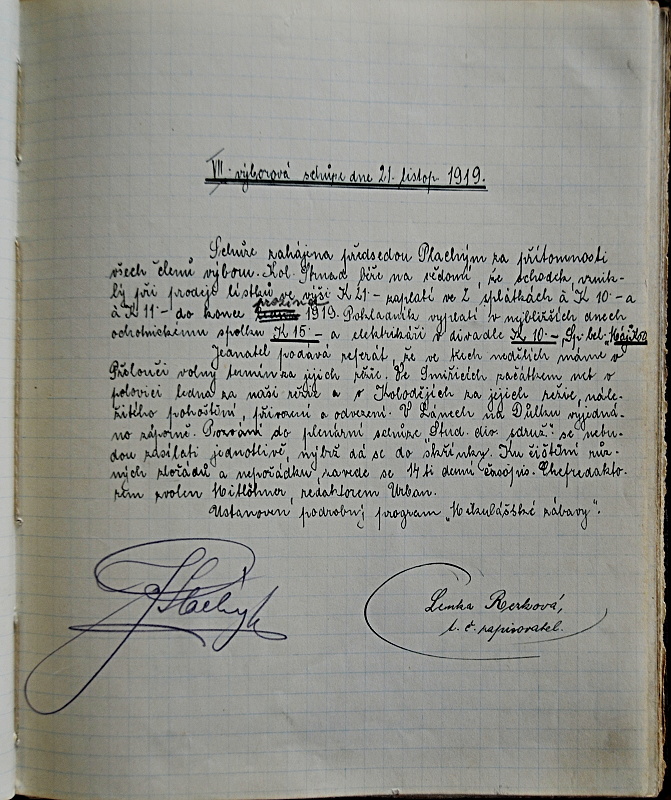 VII. výborová schůze dne 21. listop. 1919.
Schůze zahájena předsedou Plachým za přítomnosti
všech členů výboru. Kol. Strnad béře na vědomí, že schodek, vznik-
lý při prodeji lístků ve výši K 21·- zaplatí ve 2 splátkách à K 10·- a
à K 11·- do konce prosince 1919. Pokladník vyplatí v nejbližších dnech
ochotnickému spolku K 15·- a elektrikáři v divadle K 10·-
Jednatel podává referát, že ve všech nedělích máme v
Přelouči volný termín za jejich režie. Ve Smiřicích začátkem neb v
polovici ledna za naší režie a v Kolodějích za jejich režie, nále-
žitého pohoštění, přivezení a odvezení. V Lánech na Důlku vyjedná-
no záporně. Pozvání do plenární schůze Stud. div. sdruž. se nebu-
dou zasílati jednotlivě, nýbrž dá se do skřínky. Ku čištění růz-
ných zlořádů a nepořádků, zavede se 14ti denní časopis. Chefredakto-
rem zvolen redaktorem Urban.
Ustanoven podrobný program „Mikulášské zábavy".
Plachý
Lenka Rerková,
t. č. zapisovatel.